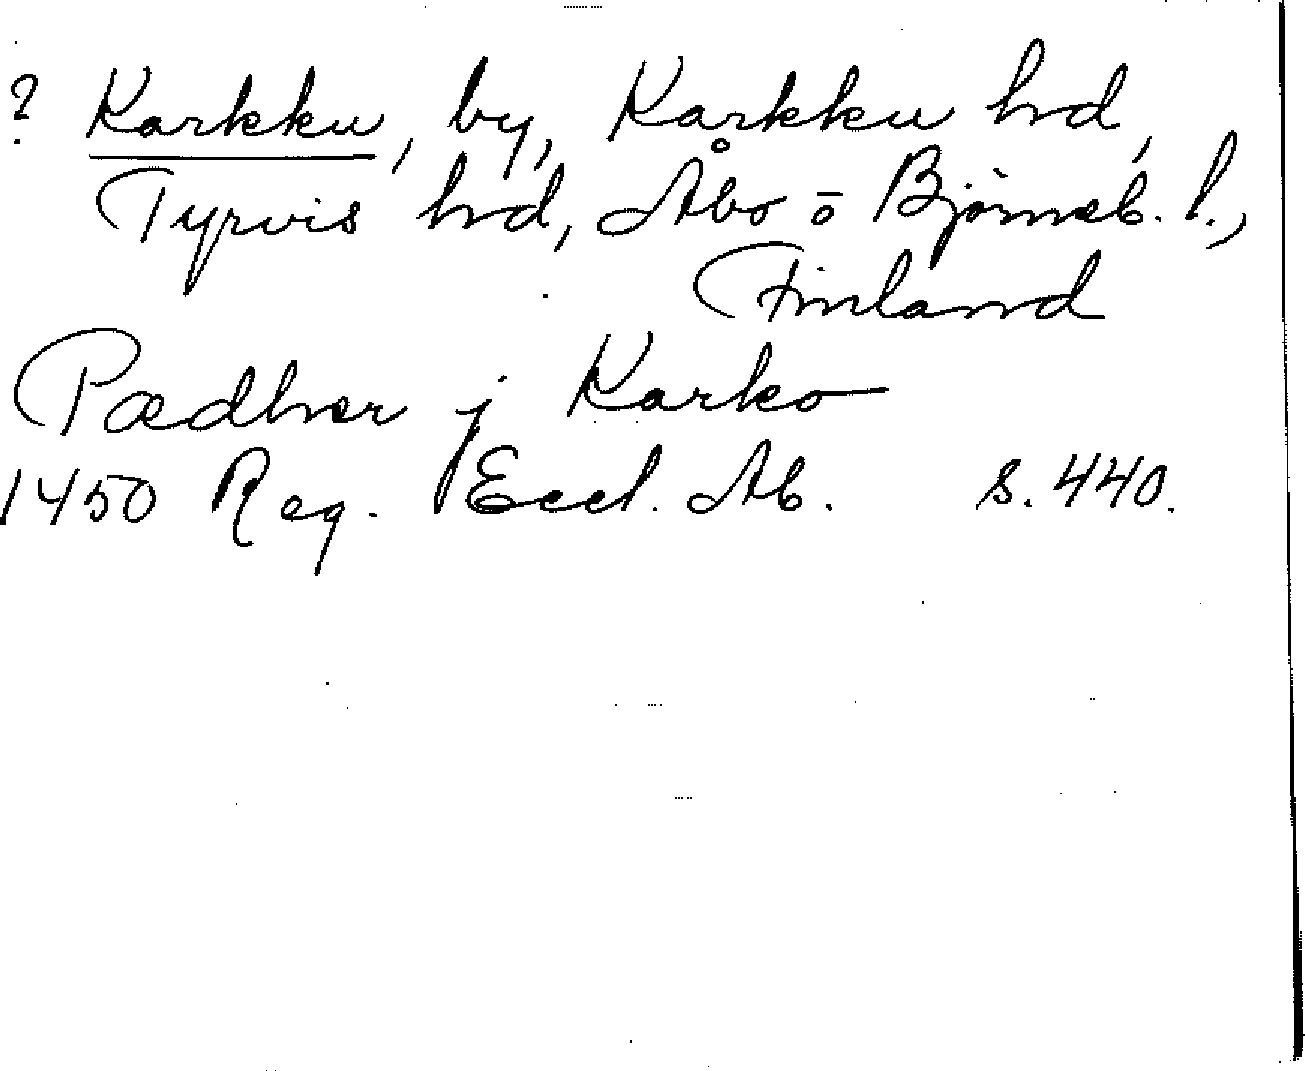 ? Karkku, by, Karkku hd,
Tyrvis hd, Åbo o Björneb. l.,
Finland
Pædher j Karko
1450 Reg. Eccl. Ab. s. 440.